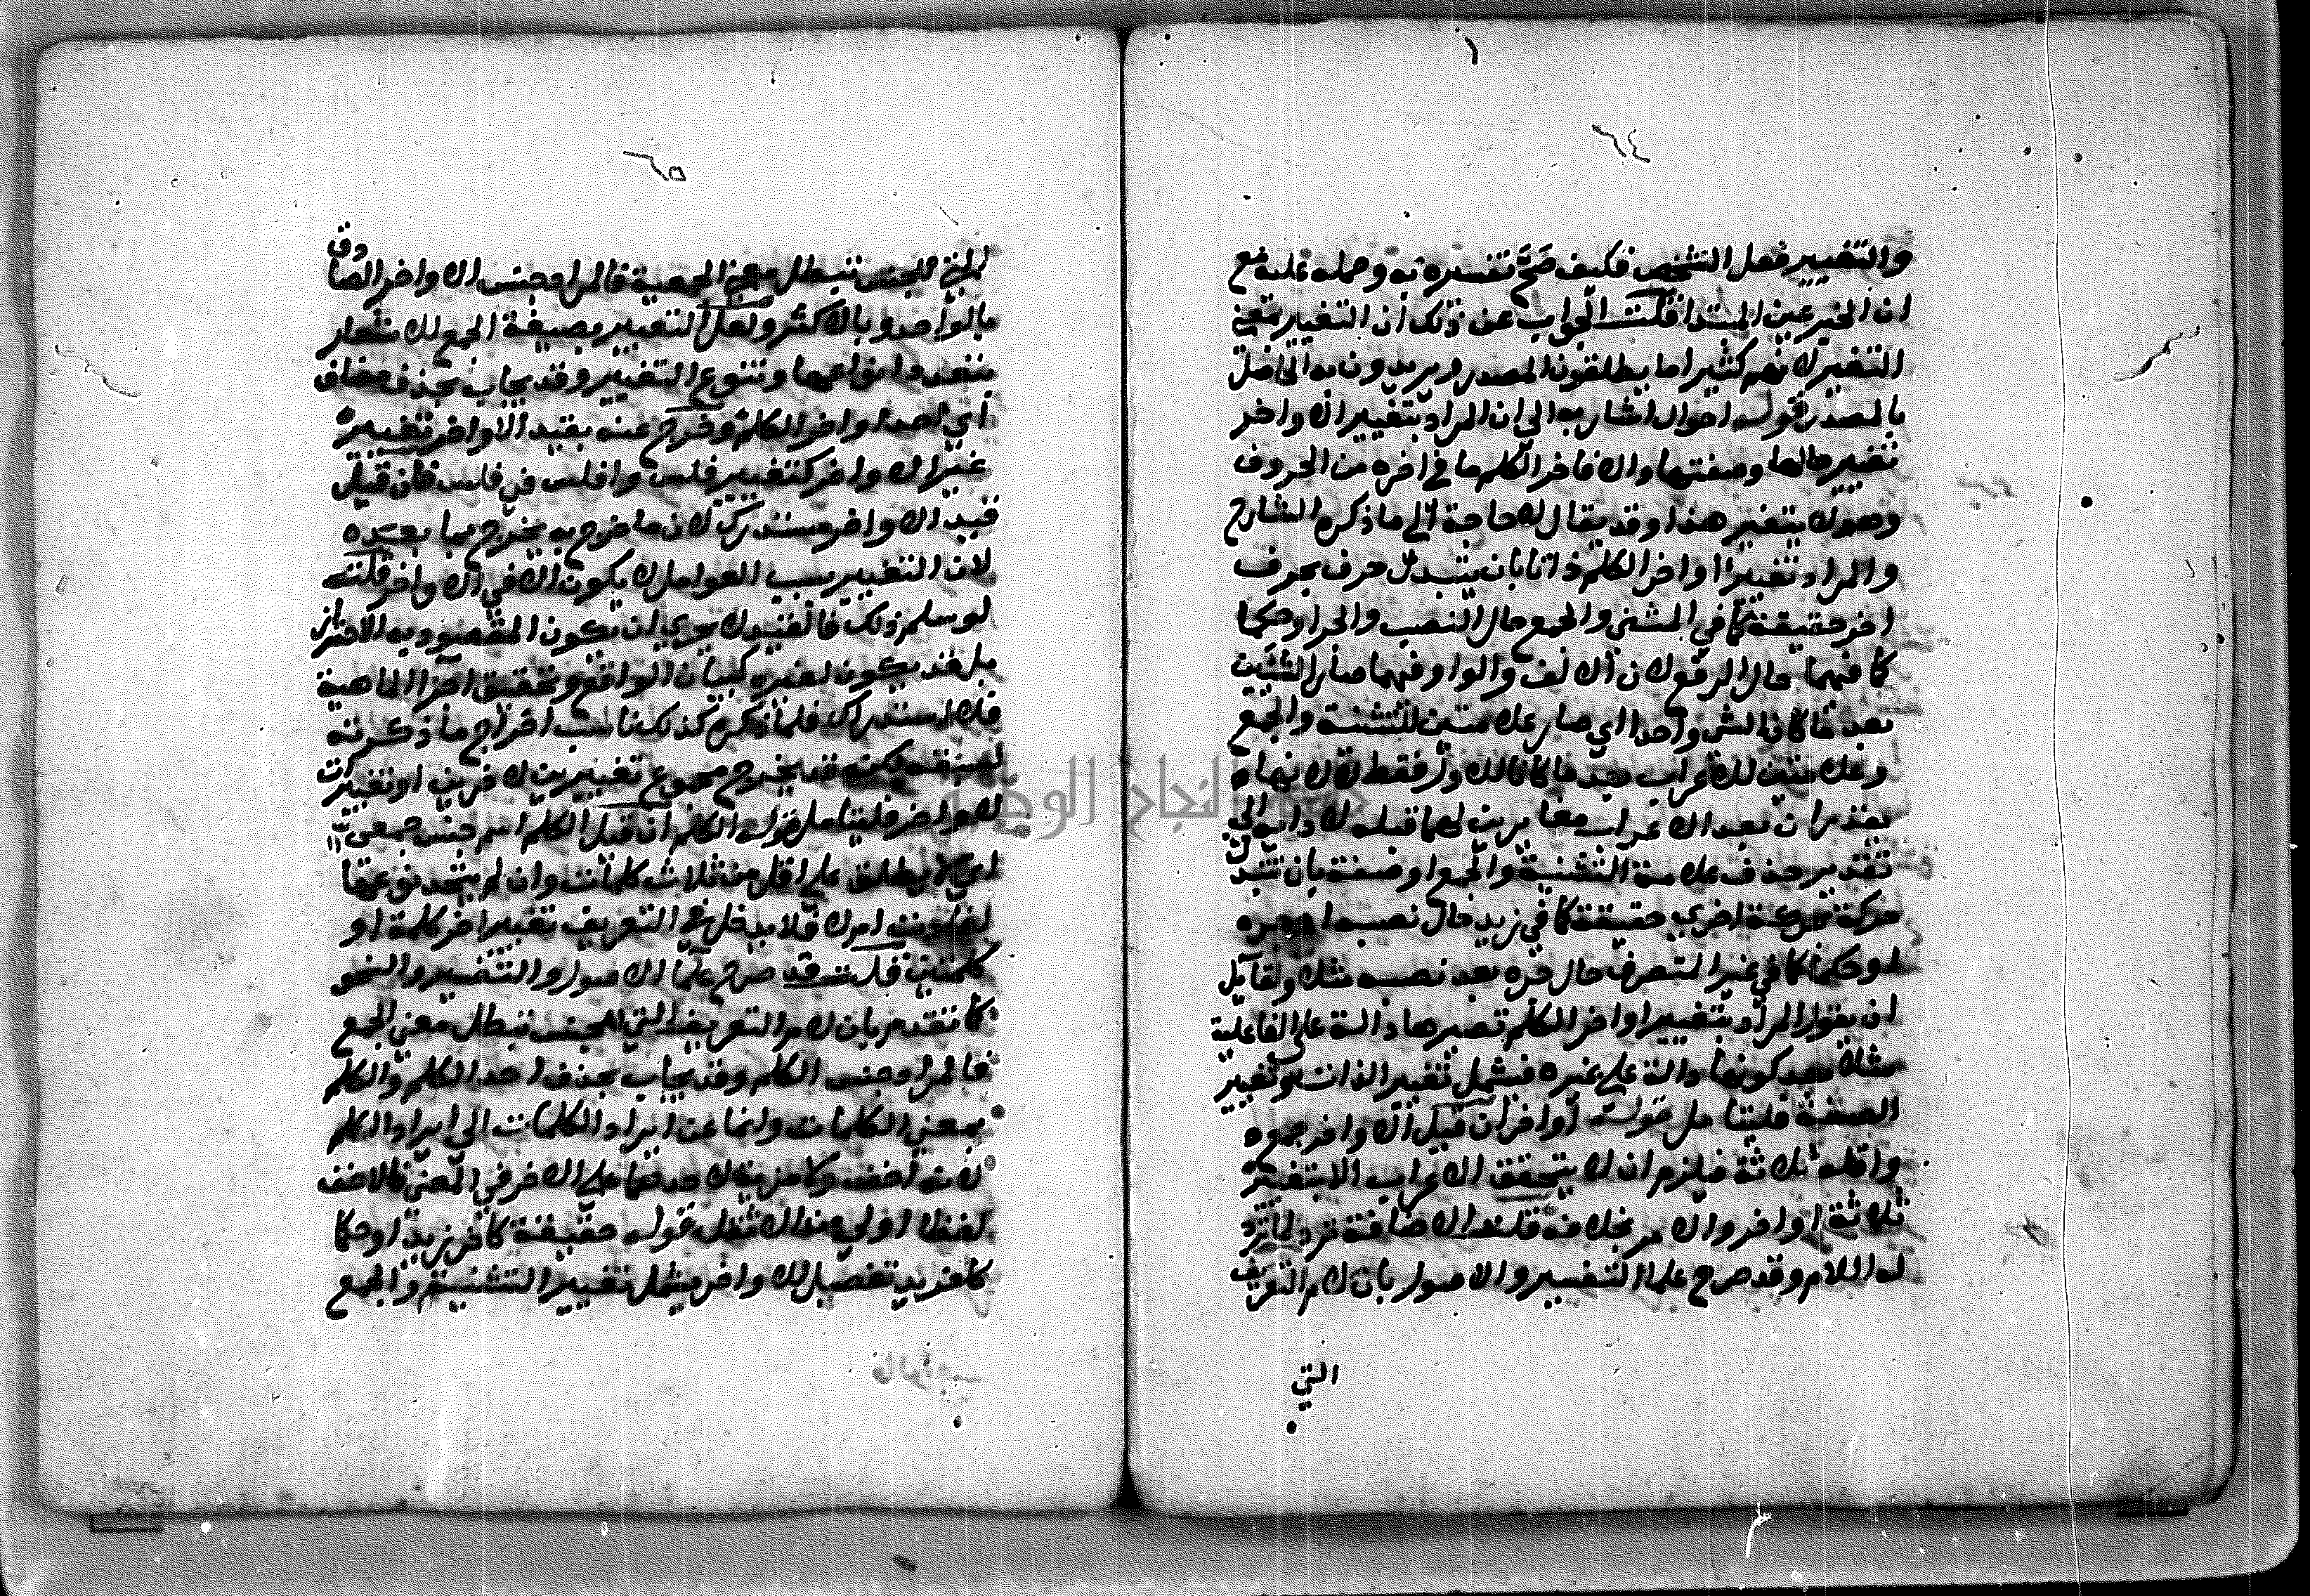 ٦٤
والتغيير فعل الشخص فكيف صح تفسيره به وحمله عليه مع
ان الخبر عين المبتدا قلت الجواب عن ذلك ان التغيير بمعنى
التغير لانهم كثيرا ما يطلقون المصدر ويريدون به الحاصل
بالمصدر قوله احوال اشار به الى ان المراد بتغيير الاواخر
تغيير حالها وصفتها والا فاخر الكلم ما في اخره من الحروف
وهو لا يتغير هذا وقد يقال لا حاجة الى ما ذكره الشارح
والمراد تغيير اواخر الكلم ذاتا بان يتبدل حرف بحرف
اخر حقيقة كما في المثنى والجمع حال النصب والجر او حكما
كما فيهما حال الرفع لان الالف والواو فيهما صار الشيئين
بعد ما كانا لشي واحد اي صار علامتين للتثنية والجمع
وعلامتين للاعراب بعد ما كانا للاول فقط لانهما
بعد الاعراب مغايرين لما قبله
تقدير حذف علامة التثنية والجمع او صفة بان تتبدل
حركة بحركة اخرى حقيقة كما في زيد حال نصبه او جره
او حكما كما في غير المنصرف حال جره بعد نصبه مثلا ولقائل
ان يقول المراد بتغيير اواخر الكلم تصييرها دالة على الفاعلية
مثلا بعد كونها دالة على غيره فيشمل تغيير الذات وتغيير
الصفة فليتامل قوله اواخر ان قيل الاواخر جموع
واقله ثلاثة فيلزم ان لا يتحقق الاعراب الا بتغيير
ثلاثة اواخر والامر بخلافه قلنا الاضافة ترد لما ترد
له اللام وقد صرح علما التفسير والاصول بان لام التعريف
التي
٦٥
التي للجنس تبطل معنى الجمعية فالمراد جنس الاواخر الصادق
بالواحد وبالاكثر ولعل التعبير بصيغة الجمع للاشعار
بتعدد انواعها وتنوع التغيير وقد يجاب بحذف مضاف
اي احد اواخر الكلم وخرج عنه بقيد الاواخر تغيير
غير الاواخر كتغيير فلس وافلس في فلس فان قيل
قيد الاواخر مستدرك لان ما خرج به يخرج بما بعده
لان التغيير بسبب العوامل لا يكون الا في الاواخر قلت
لو سلم ذلك فالقيد لا يجري ان يكون المقصود به الاحتراز
بل قد يكون لغيره كبيان الواقع وتحقيق اجزا الماهية
فلا استدراك فلما ذكره كذلك ناسب اخراج ما ذكرته
قد يخرج مجموع تغييرين لاخرين او تغييرات
لاواخر فليتامل قوله الكلم ان قيل الكلم اسم جنس جمعي
اي لا يطلق على اقل من ثلاث كلمات وان لم يتحد نوعها
لفظا فلا يدخل في التعريف تغيير اخر كلمة او
كلمتين قلت قد صرح علما الاصول والتفسير والنحو
كما تقدم بان لام التعريف التي للجنس تبطل معنى الجمع
فالمراد جنس الكلم وقد يجاب بحذف احد الكلم والكلم
بمعنى الكلمات وانما عن ايراد الكلمات الى ايراد الكلم
لانه اخف ولا مزية لاحدهما على الاخر في المعنى فالاخف
لفظا اولى من الاثقل قوله حقيقة كاخر زيد او حكما
كاخر يد تفصيل للاواخر يشمل تغيير التثنية والجمع